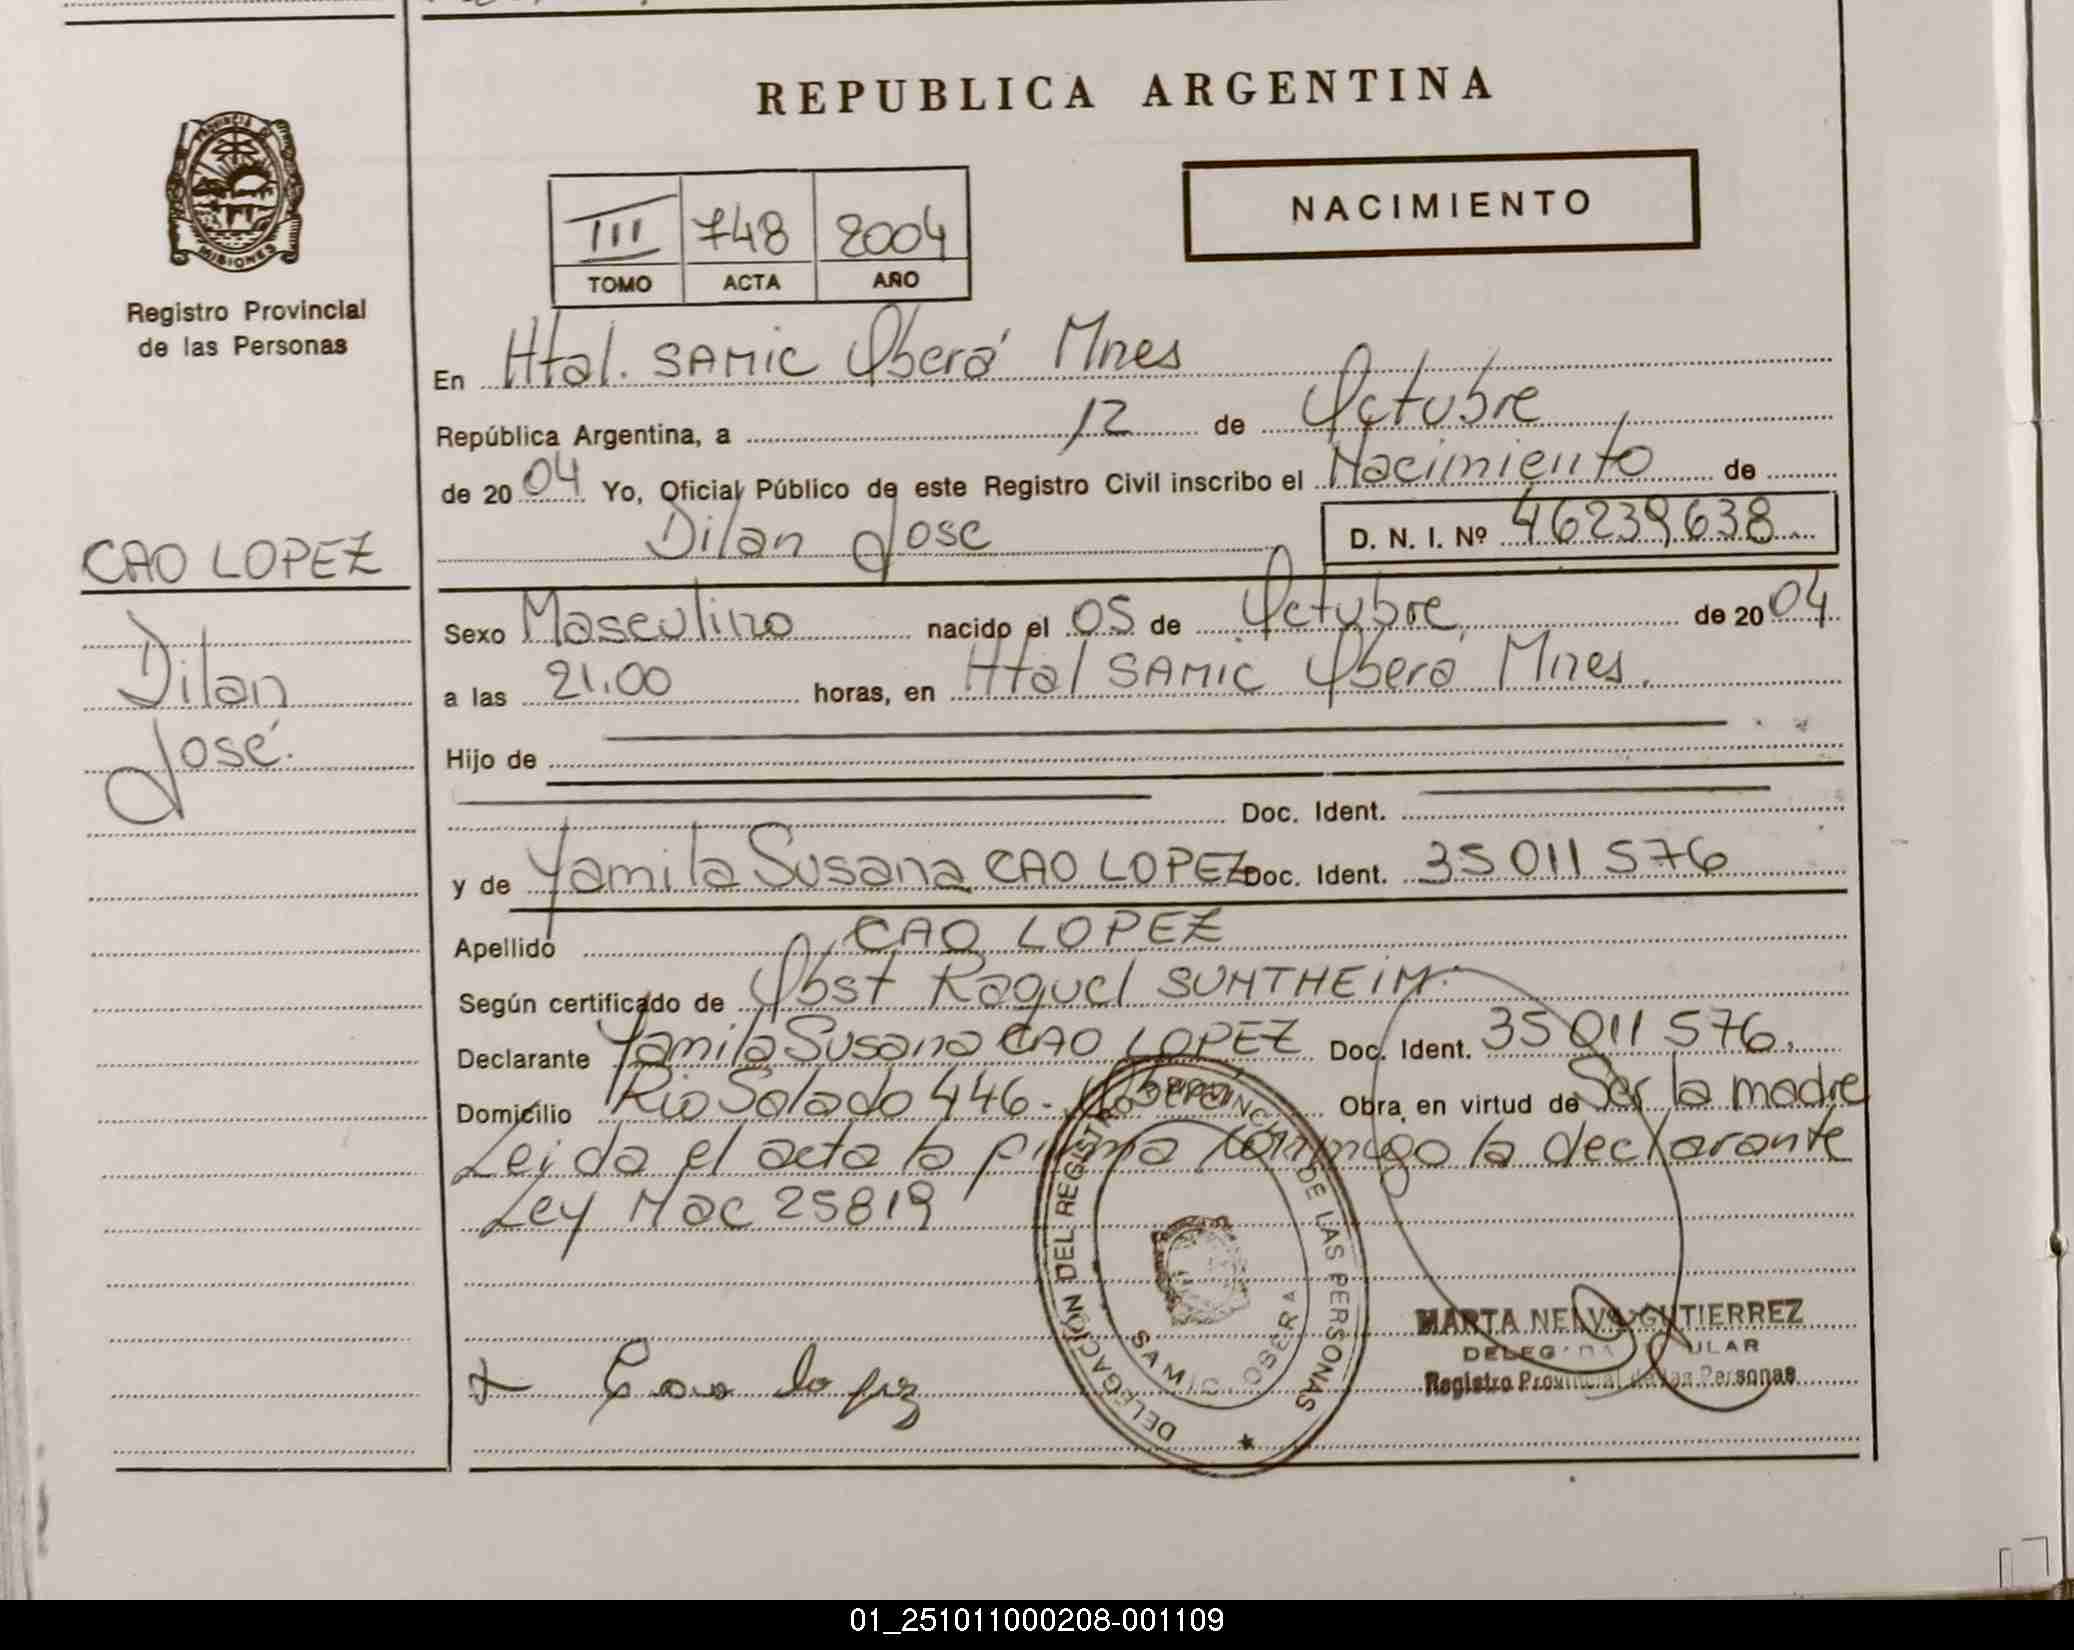 REPUBLICA ARGENTINA
PROVINCIA DE
MISIONES
Registro Provincial
de las Personas
III 748 2004
TOMO ACTA AÑO
NACIMIENTO
En Htal. SAMIC Oberá Mnes
República Argentina, a 12 de Octubre
de 2004 Yo, Oficial Público de este Registro Civil inscribo el Nacimiento de
Dilan Jose D. N. I. Nº 46239638
CAO LOPEZ
Dilan
José.
Sexo Masculino nacido el 05 de Octubre de 2004
a las 21.00 horas, en Htal SAMIC Oberá Mnes.
Hijo de
Doc. Ident.
y de Yamila Susana CAO LOPEZ Doc. Ident. 35 011 576
Apellido CAO LOPEZ
Según certificado de Obst Raquel SUNTHEIM.
Declarante Yamila Susana CAO LOPEZ Doc. Ident. 35 011 576.
Domicilio Rio Salado 446. Oberá Obra en virtud de Ser la madre
Leida el acta la firma conmigo la declarante
Ley Nac 25819
DELEGACIÓN DEL REGISTRO PROVINCIAL DE LAS PERSONAS
SAMIC OBERA
MARTA NELVS GUTIERREZ
DELEGADA TITULAR
Registro Provincial de las Personas
+ Cao lopez
01_251011000208-001109